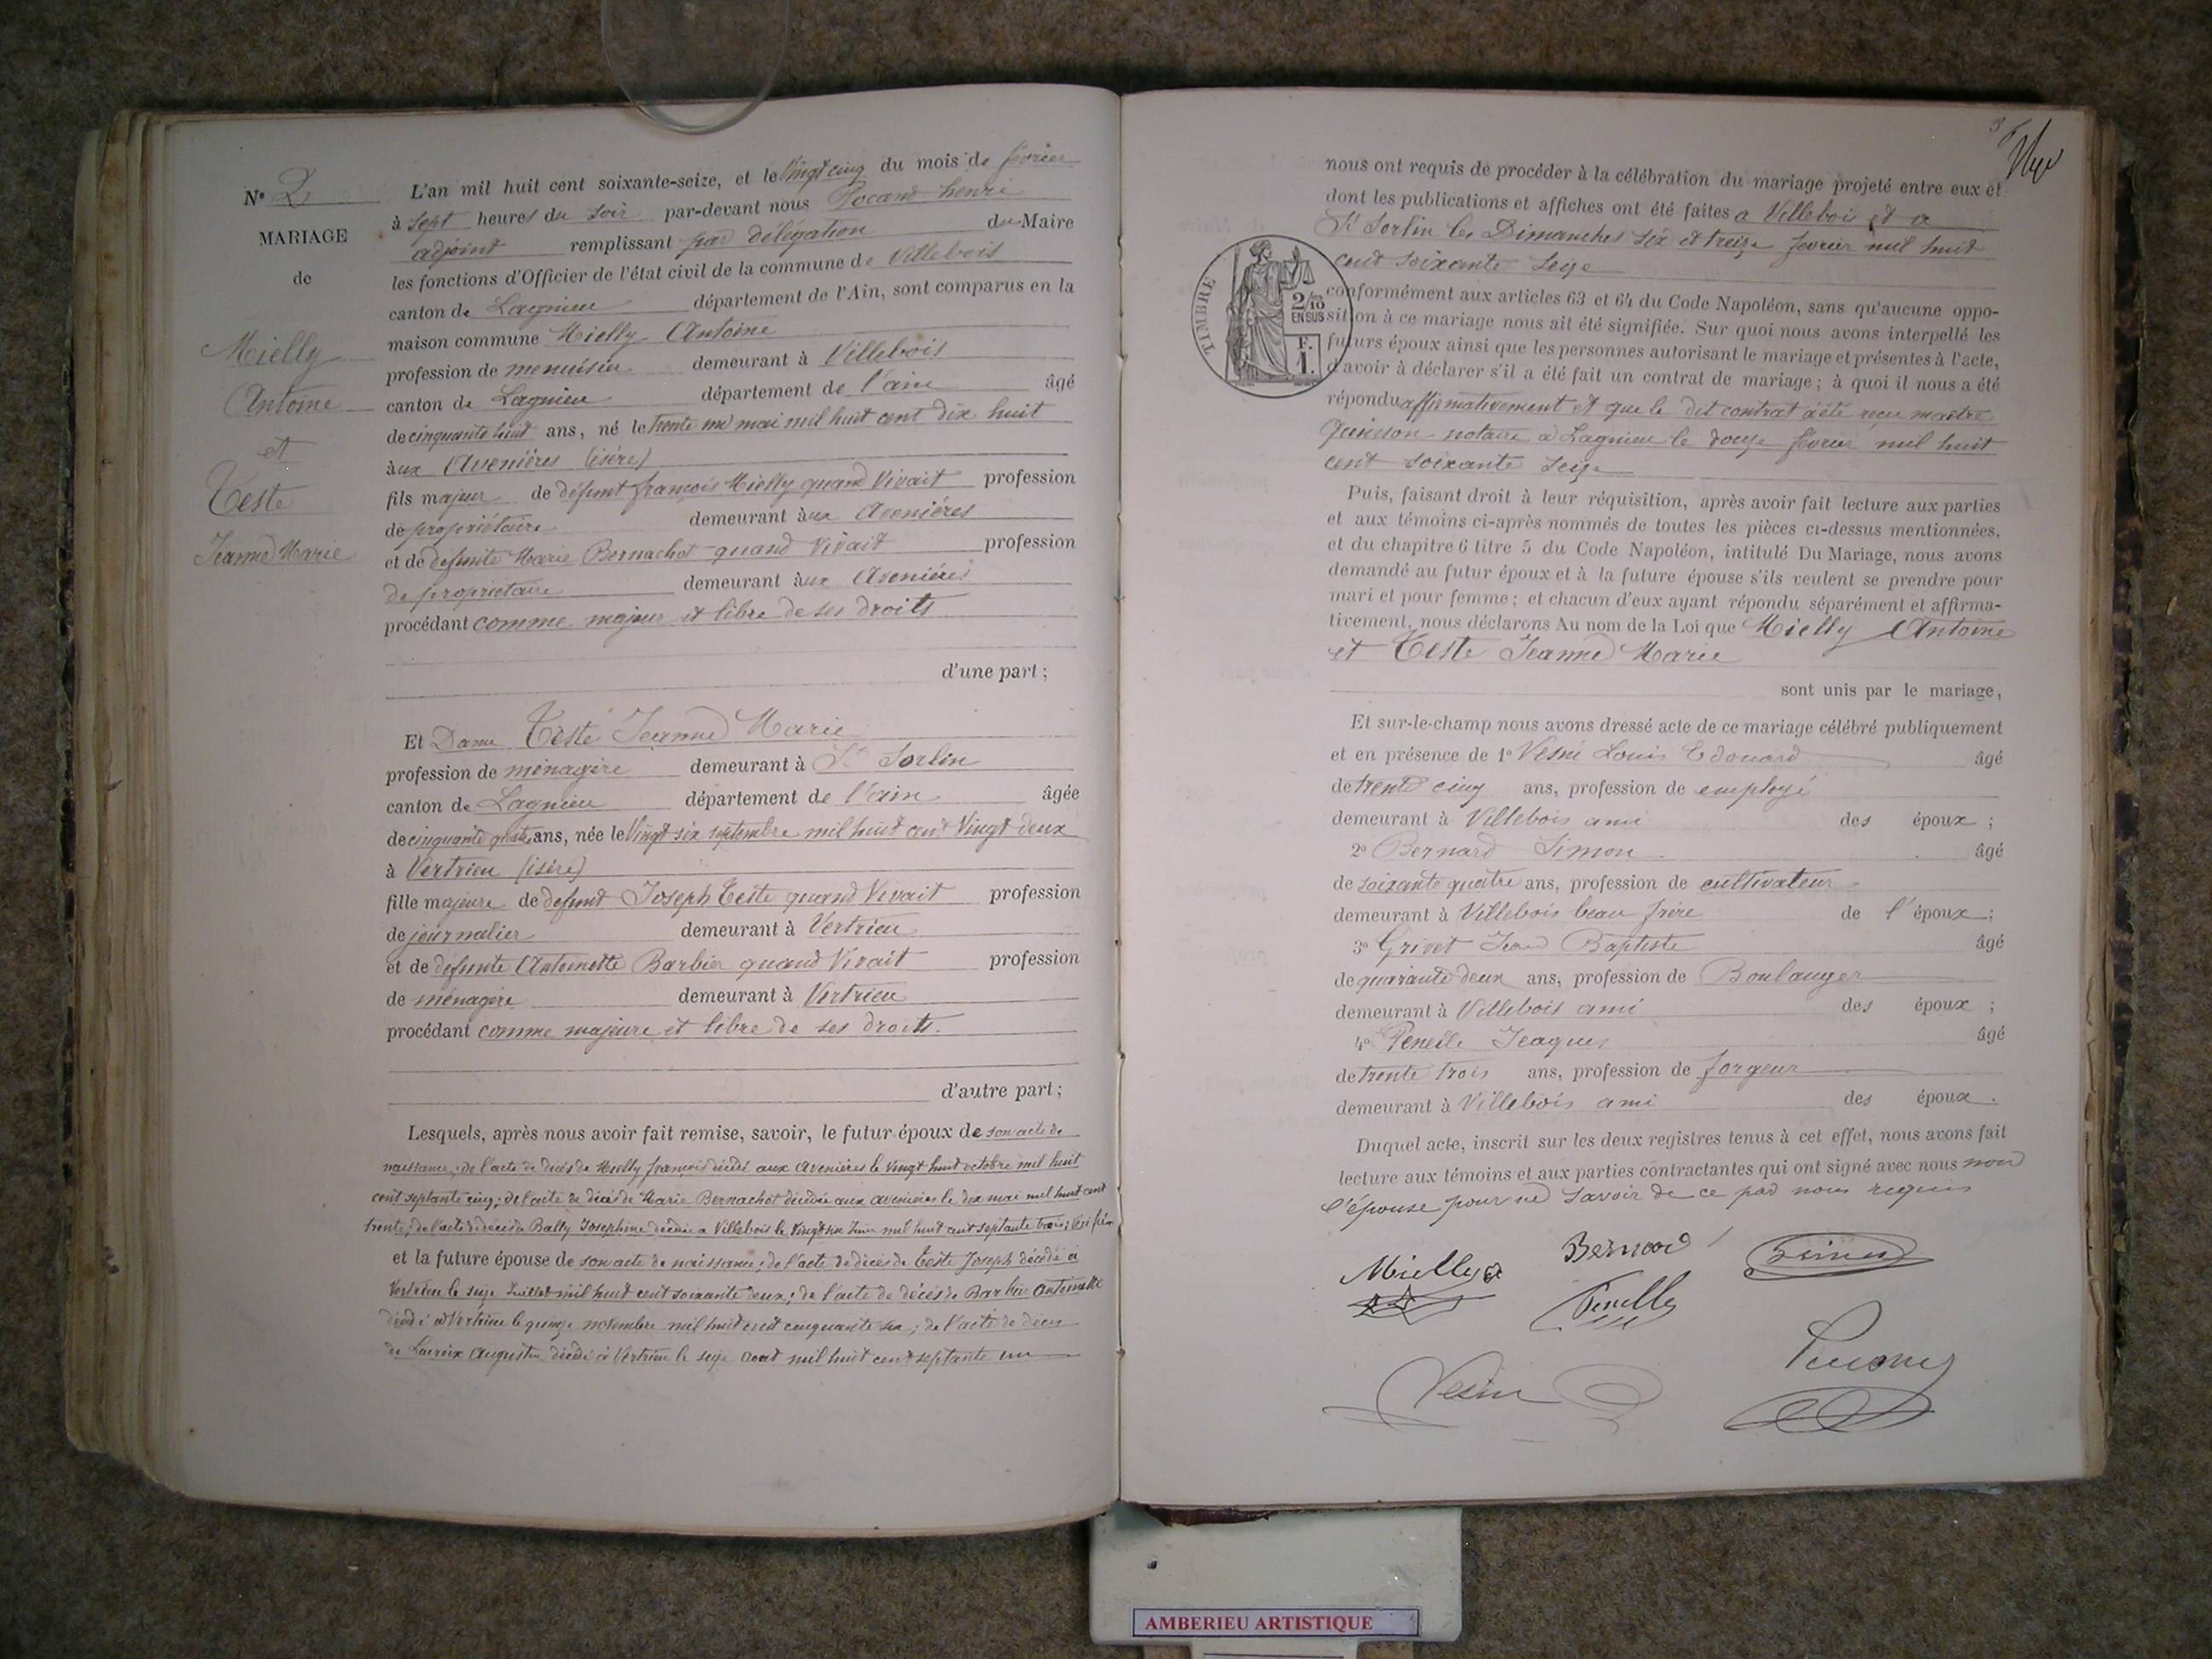 N° 2
MARIAGE
de
Mielly
Antoine
et
Teste
Jeanne Marie
L'an mil huit cent soixante-seize, et le Vingt cinq du mois de fevrier
à sept heures du soir par-devant nous Pocand henri
adjoint remplissant par délégation du Maire
les fonctions d'Officier de l'état civil de la commune de Villebois
canton de Lagnieu département de l'Ain, sont comparus en la
maison commune Mielly Antoine
profession de menuisier demeurant à Villebois
canton de Lagnieu département de l'ain âgé
de cinquante huit ans, né le trente un mai mil huit cent dix huit
à ux Avenières (isère)
fils majeur de défunt françois Mielly quand Vivait profession
de propriétaire demeurant à ux Avenières
et de defunte Marie Bernachot quand Vivait profession
de propriétaire demeurant à ux Avenières
procédant comme majeur et libre de ses droits
d'une part;
Et Dame Teste Jeanne Marie
profession de ménagère demeurant à St Sorlin
canton de Lagnieu département de l'ain âgée
de cinquante quatre ans, née le Vingt six septembre mil huit cent Vingt deux
à Vertrieu (isère)
fille majeure de defunt Joseph Teste quand Vivait profession
de journalier demeurant à Vertrieu
et de defunte Antoinette Barbier quand Vivait profession
de ménagère demeurant à Vertrieu
procédant comme majeure et libre de ses droits.
d'autre part;
Lesquels, après nous avoir fait remise, savoir, le futur époux de son acte de
naissance; de l'acte de décès de Mielly françois décédé aux Avenières le Vingt huit octobre mil huit
cent septante cinq; de l'acte de décès de Marie Bernachot décédée aux avenières le dix mai mil huit cent
trente; de l'acte de décès de Bally Josephine décédée a Villebois le Vingt six Juin mil huit cent septante trois;
et la future épouse de son acte de naissance; de l'acte de décès de Teste Joseph décédé à
Vertrieu le seize Juillet mil huit cent soixante deux; de l'acte de décès de Barbier Antoinette
décédé à Vertrieu le quinze novembre mil huit cent cinquante six; de l'acte de décès
de Lacroix Augustin décédé à Vertrieu le seize aout mil huit cent septante un
3
nous ont requis de procéder à la célébration du mariage projeté entre eux et
dont les publications et affiches ont été faites a Villebois et a
St Sorlin les Dimanches six et treize fevrier mil huit
cent soixante seize
TIMBRE
2/10
EN SUS
F.
1.
conformément aux articles 63 et 64 du Code Napoléon, sans qu'aucune oppo-
sition à ce mariage nous ait été signifiée. Sur quoi nous avons interpellé les
futurs époux ainsi que les personnes autorisant le mariage et présentes à l'acte,
d'avoir à déclarer s'il a été fait un contrat de mariage; à quoi il nous a été
répondu affirmativement et que le dit contrat a été reçu maître
notaire a Lagnieu le douze fevrier mil huit
cent soixante seize
Puis, faisant droit à leur réquisition, après avoir fait lecture aux parties
et aux témoins ci-après nommés de toutes les pièces ci-dessus mentionnées,
et du chapitre 6 titre 5 du Code Napoléon, intitulé Du Mariage, nous avons
demandé au futur époux et à la future épouse s'ils veulent se prendre pour
mari et pour femme; et chacun d'eux ayant répondu séparément et affirma-
tivement, nous déclarons Au nom de la Loi que Mielly Antoine
et Teste Jeanne Marie
sont unis par le mariage,
Et sur-le-champ nous avons dressé acte de ce mariage célébré publiquement
et en présence de 1° Vesin Louis Edouard âgé
de trente cinq ans, profession de employé
demeurant à Villebois ami des époux;
2° Bernard Simon âgé
de soixante quatre ans, profession de cultivateur
demeurant à Villebois beau frère de l'époux;
3° Grivet Jean Baptiste âgé
de quarante deux ans, profession de Boulanger
demeurant à Villebois ami des époux;
4° Penelle Jeaques âgé
de trente trois ans, profession de forgeur
demeurant à Villebois ami des époux.
Duquel acte, inscrit sur les deux registres tenus à cet effet, nous avons fait
lecture aux témoins et aux parties contractantes qui ont signé avec nous non
l'épouse pour ne savoir de ce par nous requis
Mielly
Bernard
Penelle
Vesin
AMBERIEU ARTISTIQUE